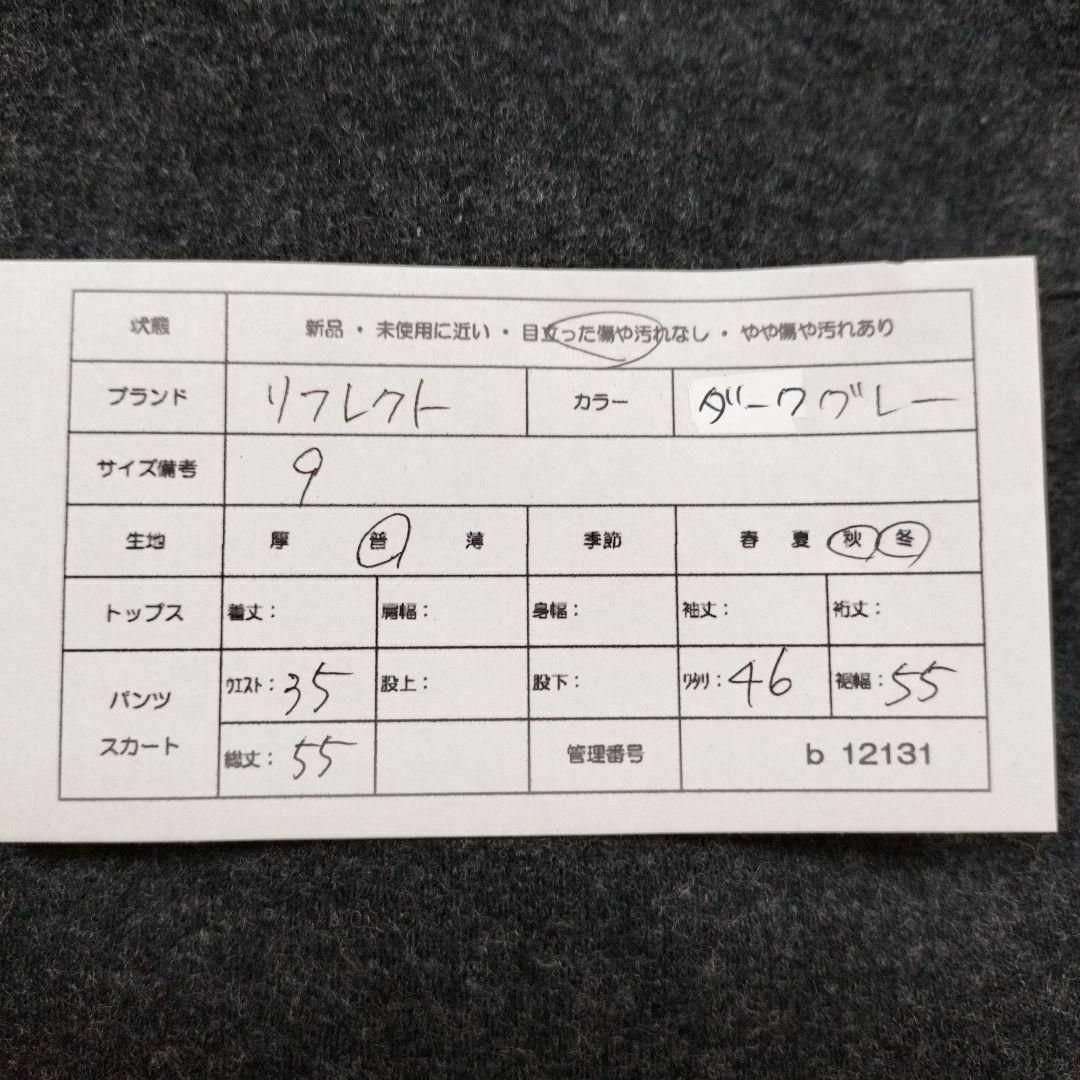 状態 新品・未使用に近い・目立った傷や汚れなし・やや傷や汚れあり
ブランド リフレクト カラー ダークグレー
サイズ備考 9
生地 厚 普 薄 季節 春 夏 秋 冬
トップス 着丈： 肩幅： 身幅： 袖丈： 裄丈：
パンツ スカート ウエスト：35 股上： 股下： ワタリ：46 裾幅：55
総丈：55 管理番号 b 12131